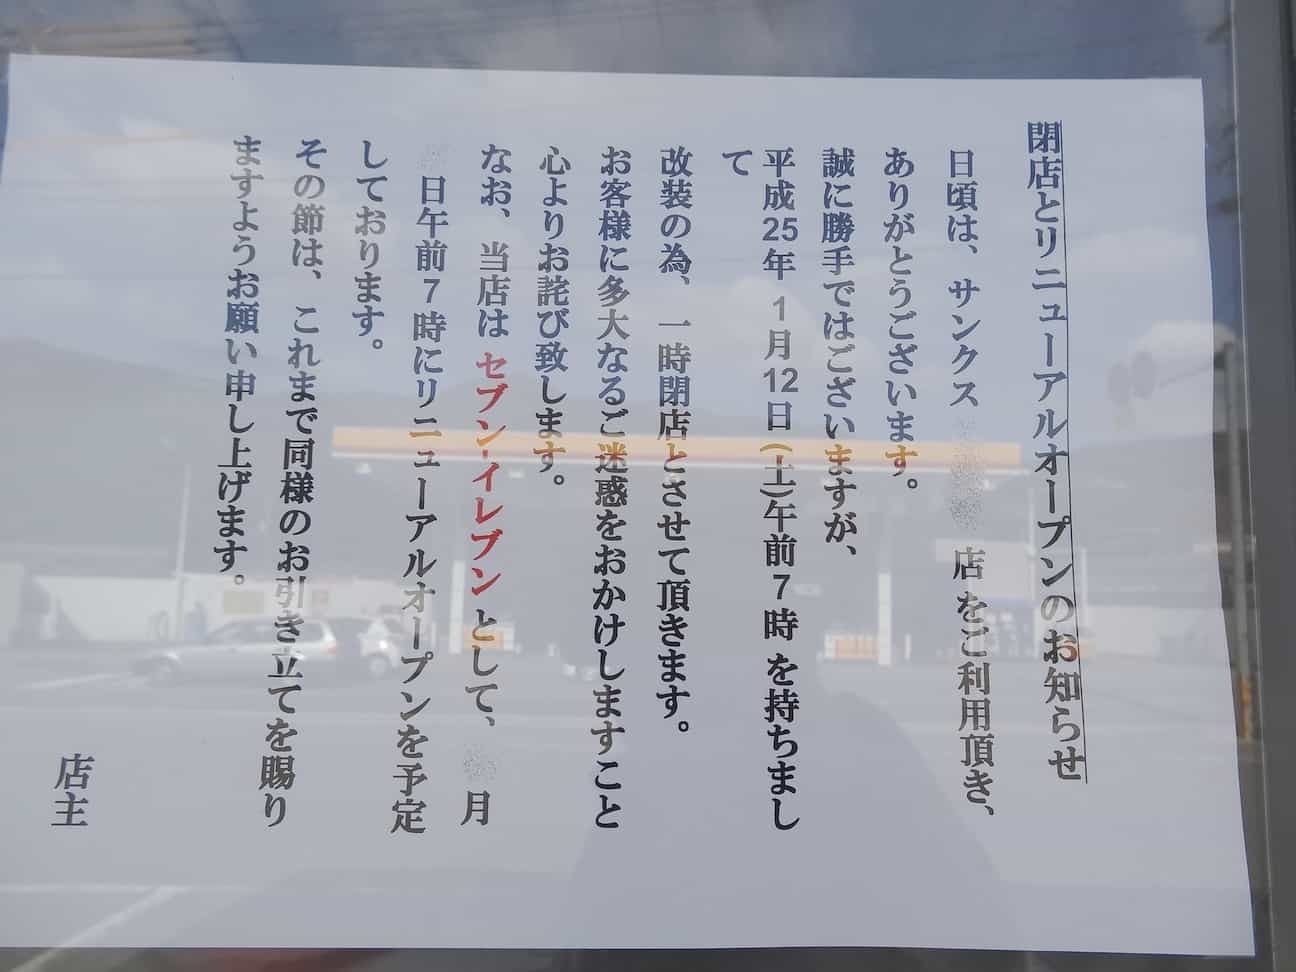 閉店とリニューアルオープンのお知らせ
日頃は、サンクス 店 をご利用頂き、
ありがとうございます。
誠に勝手ではございますが、
平成25年 1月12日(土)午前7時 を持ちまし
て
改装の為、一時閉店とさせて頂きます。
お客様に多大なるご迷惑をおかけしますこと
心よりお詫び致します。
なお、当店は セブン-イレブン として、 月
日午前7時にリニューアルオープンを予定
しております。
その節は、これまで同様のお引き立てを賜り
ますようお願い申し上げます。
店主